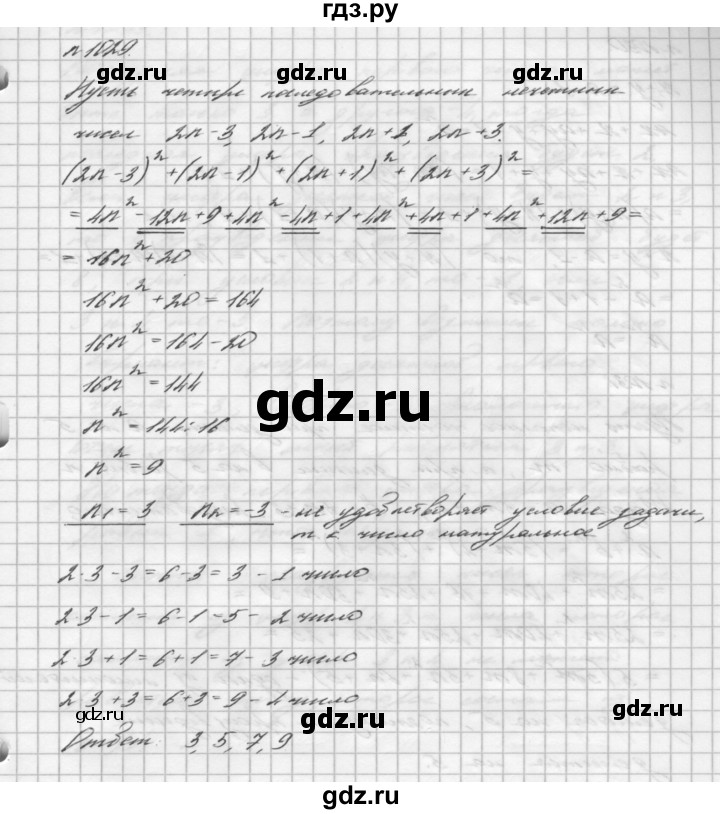 гдз.ру
n 1029.
Пусть четыре последовательных нечетных
чисел 2n-3, 2n-1, 2n+1, 2n+3.
(2n-3)² + (2n-1)² + (2n+1)² + (2n+3)² =
= 4n² - 12n + 9 + 4n² - 4n + 1 + 4n² + 4n + 1 + 4n² + 12n + 9 =
= 16n² + 20
16n² + 20 = 164
16n² = 164 - 20
16n² = 144
n² = 144 : 16
n² = 9
n₁ = 3 n₂ = -3 - не удовлетворяет условие задачи,
т.к число натуральное
2·3-3 = 6-3 = 3 - 1 число
2·3-1 = 6-1 = 5 - 2 число
2·3+1 = 6+1 = 7 - 3 число
2·3+3 = 6+3 = 9 - 4 число
Ответ: 3, 5, 7, 9
gdz.ru
gdz.ru
gdz.ru
gdz.ru
gdz.ru
gdz.ru
gdz.ru
gdz.ru
gdz.ru
gdz.ru
gdz.ru